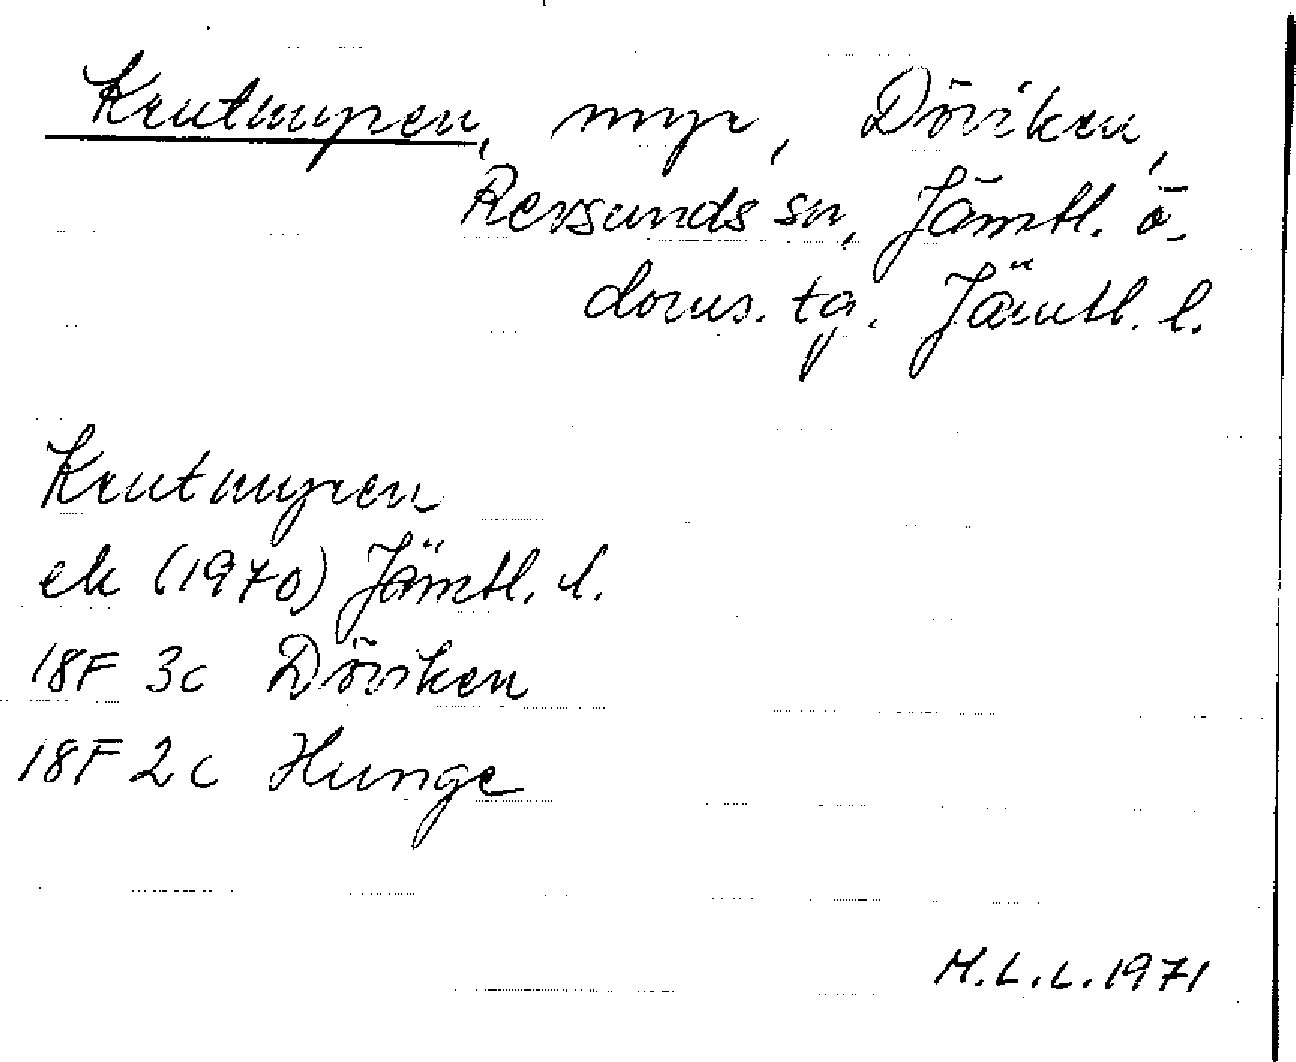 Krutmyren, myr, Döviken,
Revsunds sn, Jämtl. ö.
doms. tg. Jämtl. l.
Krutmyren
ek (1970) Jämtl. l.
18F 3c Döviken
18F 2c Hunge
M.L.L. 1971